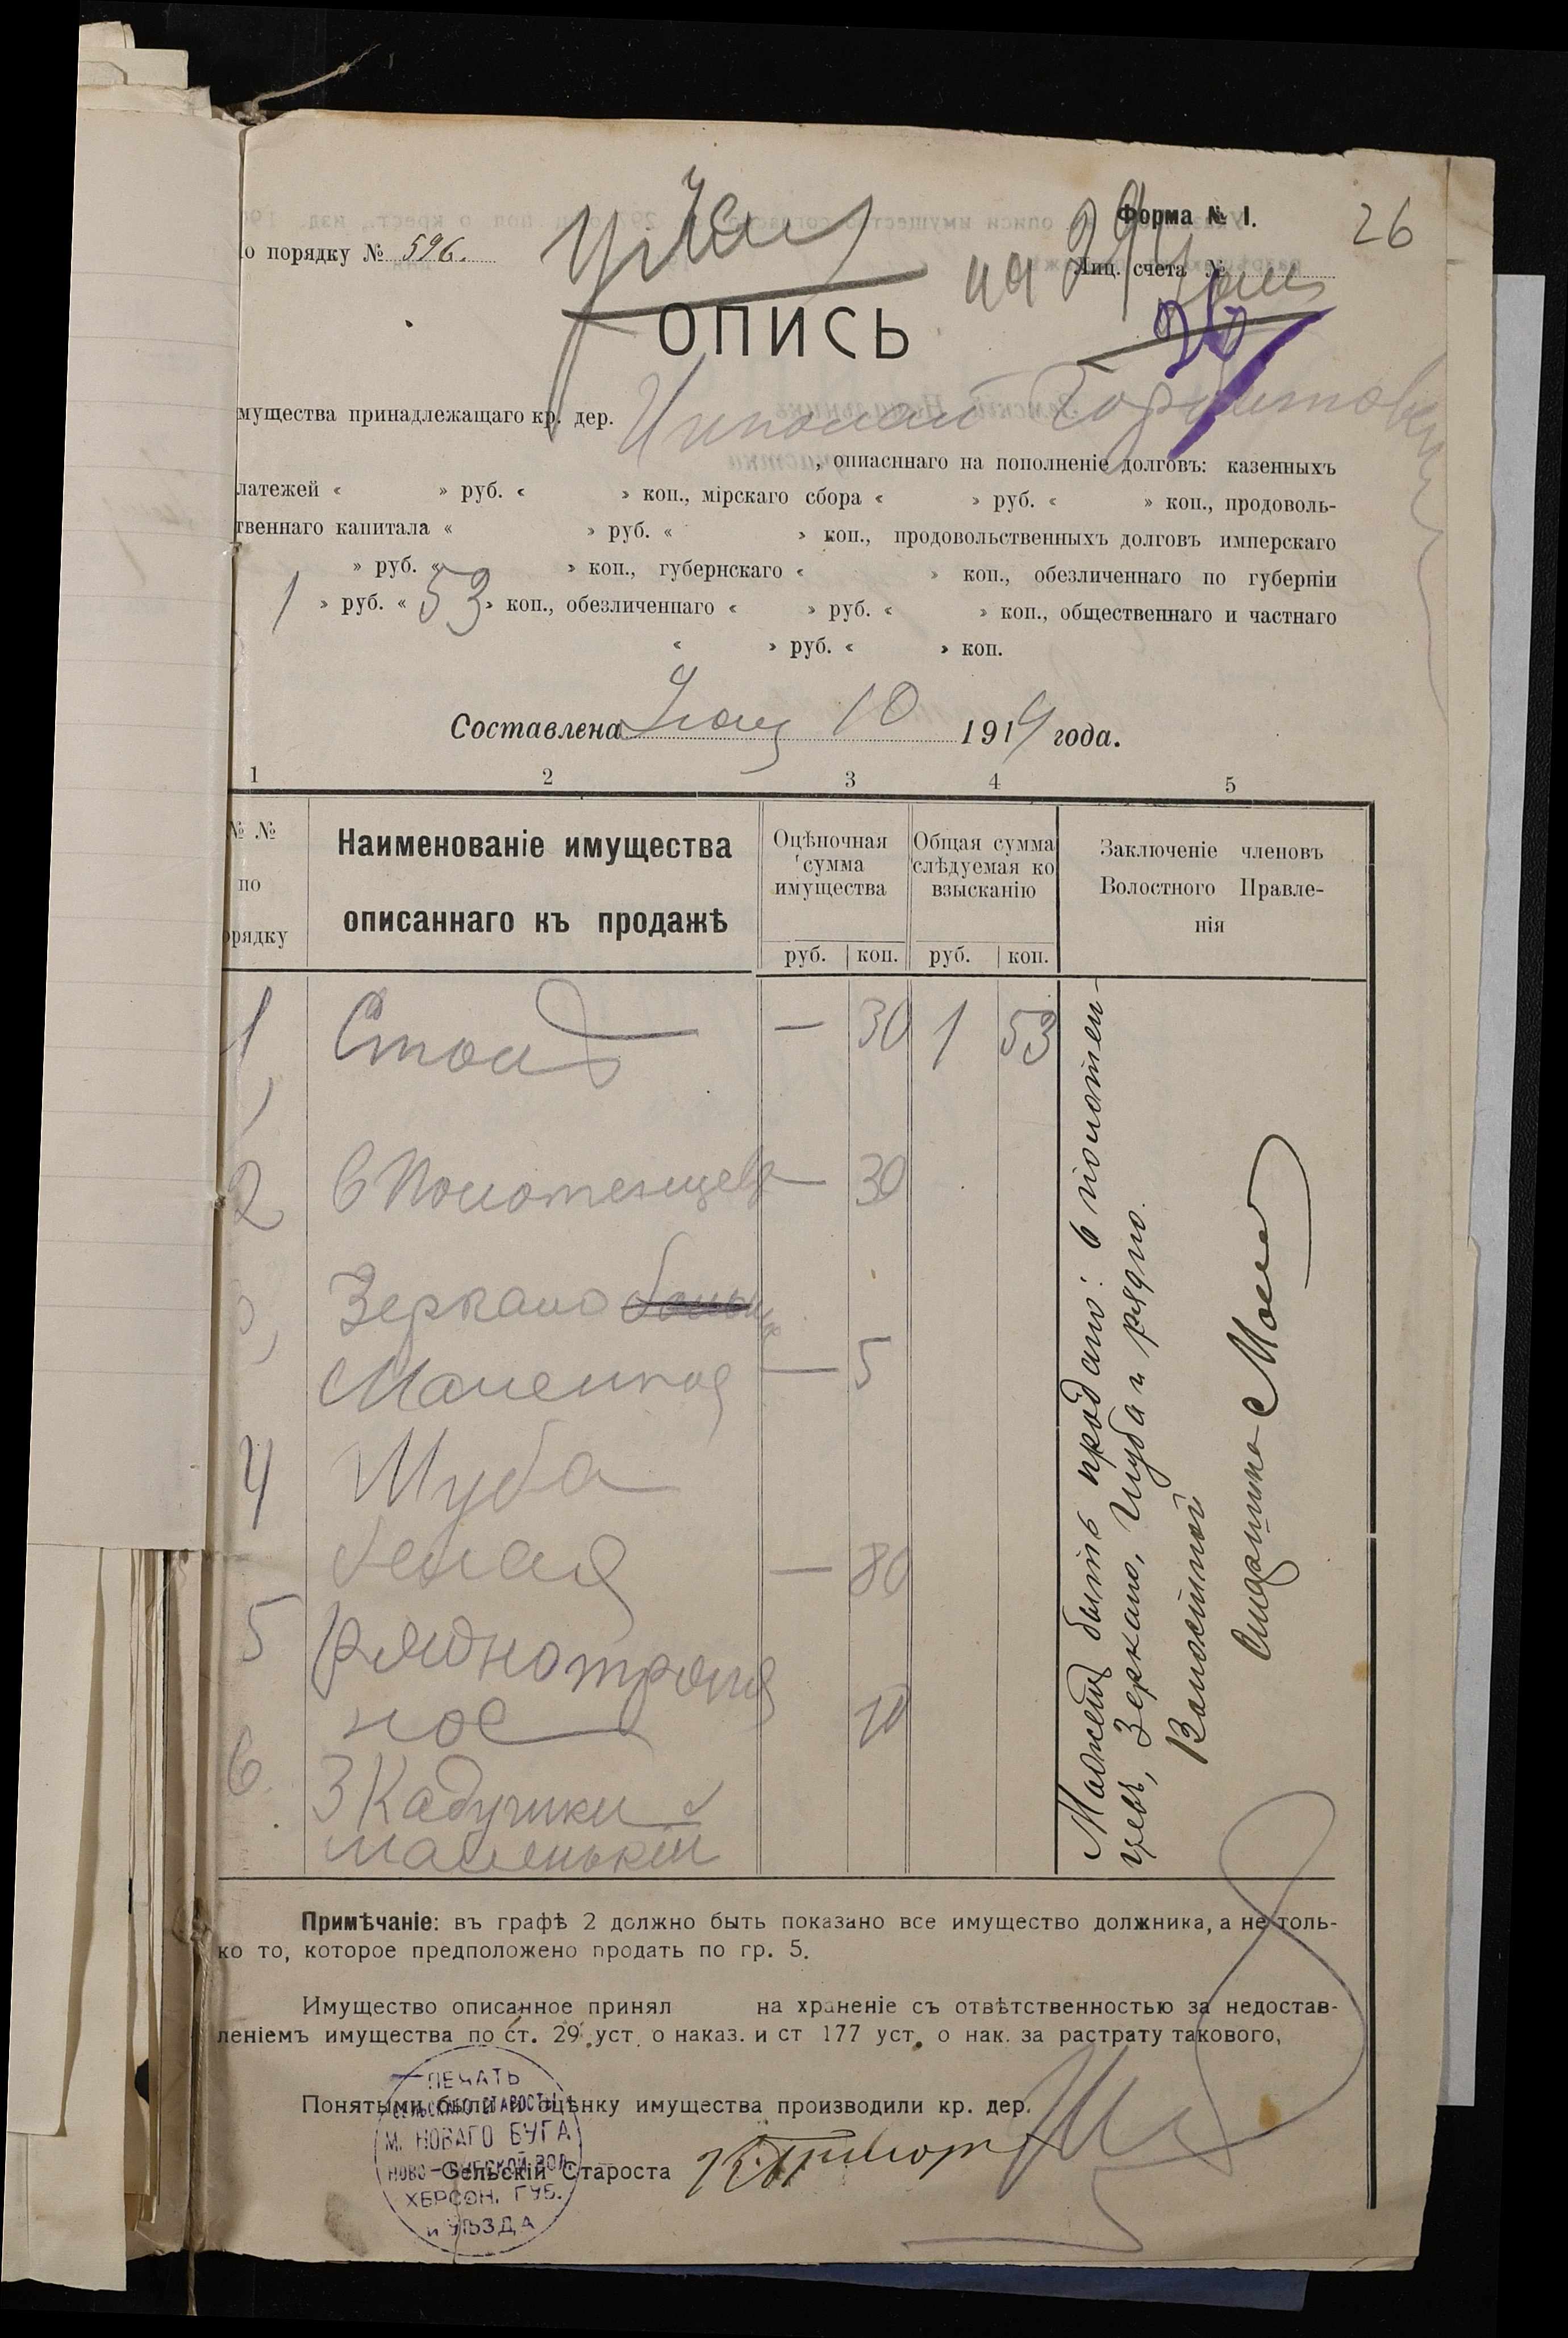 Форма № I.
26
о порядку № 596.
Лиц. счета №
на 29
26
ОПИСЬ
мущества принадлежащаго кр. дер. Николай
, описаннаго на пополненіе долговъ: казенныхъ
латежей « » руб. « » коп., мірскаго сбора « » руб. « » коп., продоволь-
твеннаго капитала « » руб. « » коп., продовольственныхъ долговъ имперскаго
» руб. « » коп., губернскаго « » коп., обезличеннаго по губерніи
1 » руб. « 53 » коп., обезличеннаго « » руб. « » коп., общественнаго и частнаго
« » руб. « » коп.
Составлена 10 1914 года.
1 2 3 4 5
№ №
по
орядку
Наименованіе имущества
описаннаго къ продажѣ
Оцѣночная
сумма
имущества
руб. коп.
Общая сумма
слѣдуемая ко
взысканію
руб. коп.
Заключеніе членовъ
Волостного Правле-
нія
1 Столъ — 30 1 53
2 6 Полотенцева — 30
3, Зеркало
Маленкоя — 5
4 Шуба
белая — 80
5 рядно тряпя
ное 10
6. 3 Кадушки
маленькіи
Можетъ быть продано: 6 полотен-
цевъ, Зеркало, Шуба и рядно.
Волостной
Старшина
Примѣчаніе: въ графѣ 2 должно быть показано все имущество должника, а не толь-
ко то, которое предположено продать по гр. 5.
Имущество описанное принял на храненіе съ отвѣтственностью за недостав-
леніемъ имущества по ст. 29 уст. о наказ. и ст 177 уст. о нак. за растрату такового,
Понятыми были и оцѣнку имущества производили кр. дер.
Сельскій Староста
ПЕЧАТЬ
СЕЛЬСКАГО СТАРОСТЫ
М. НОВАГО БУГА
НОВО-БУГСКОЙ ВОЛ.
ХЕРСОН. ГУБ.
и УѢЗДА